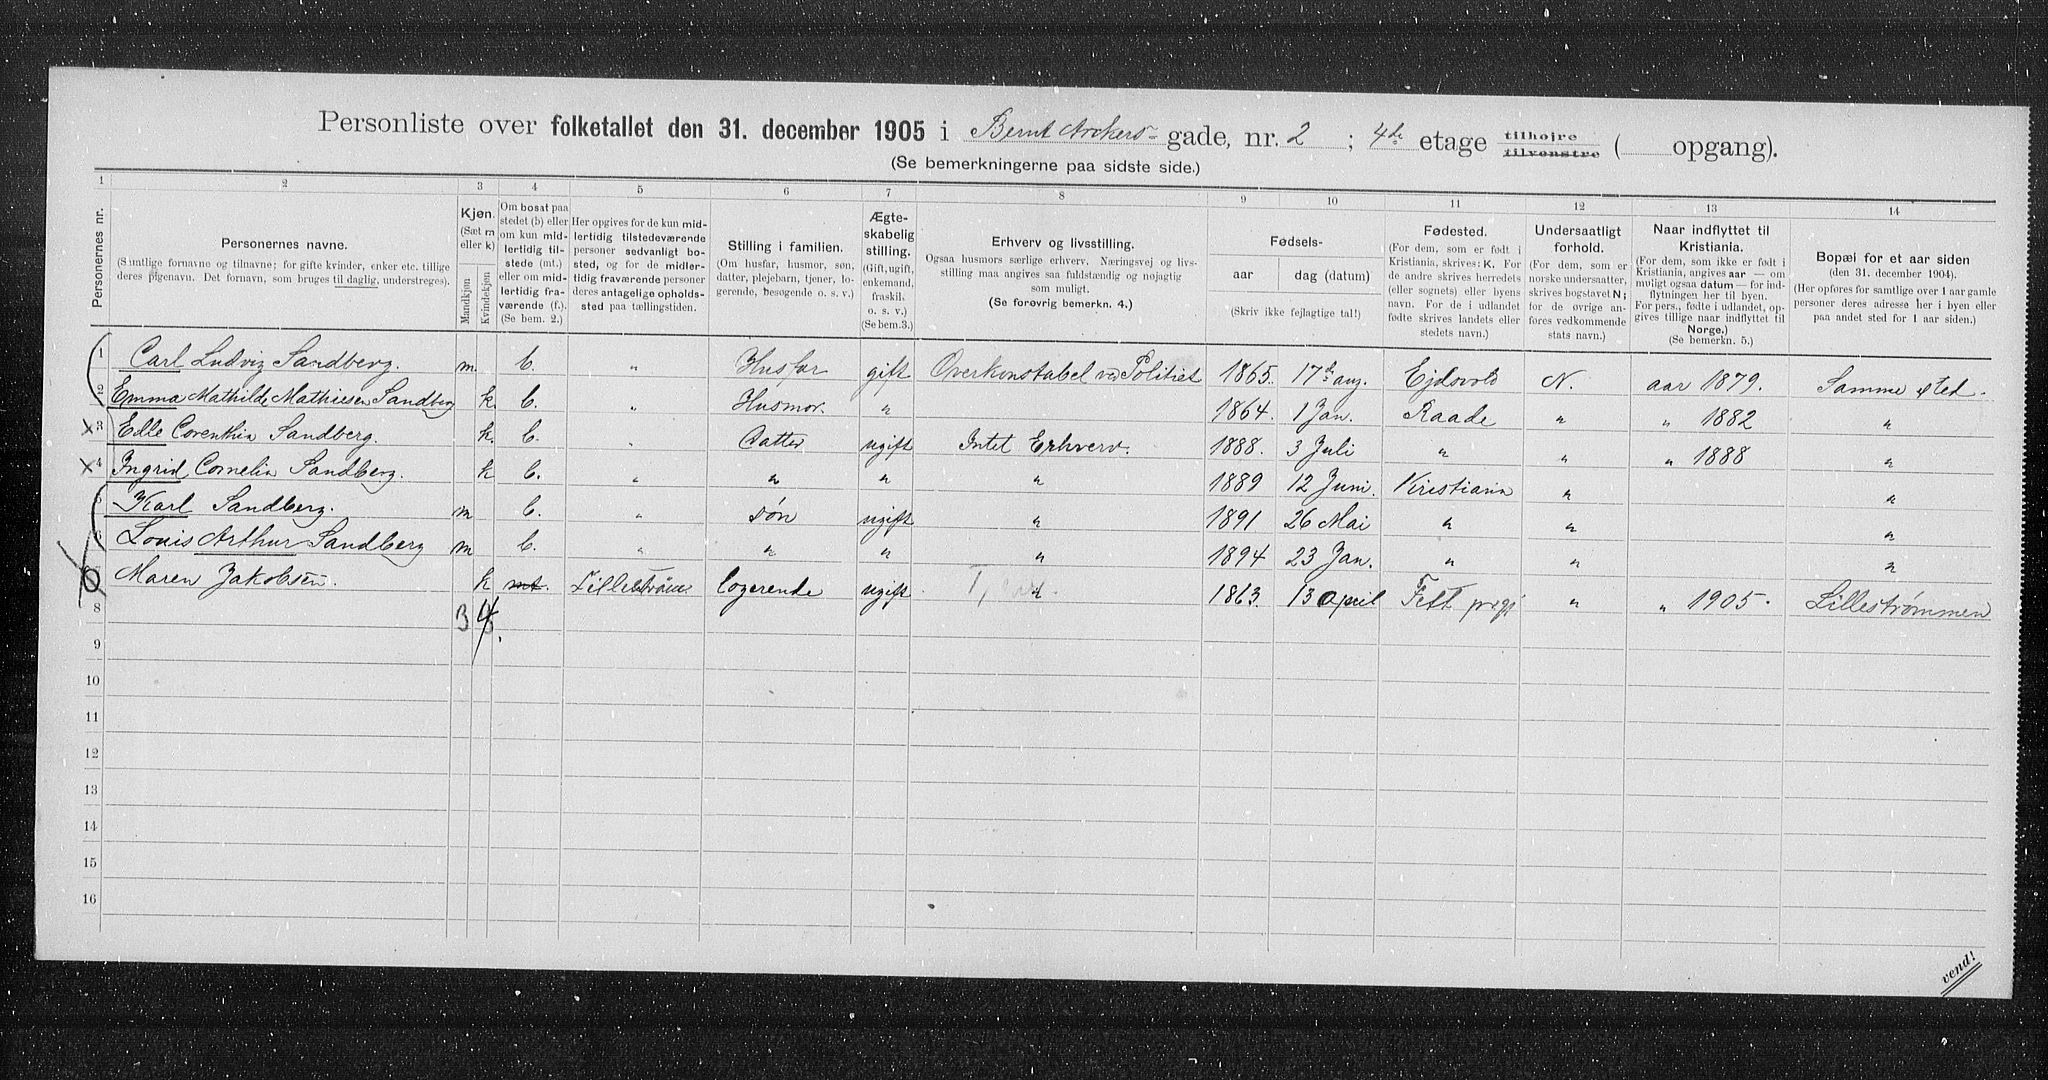 Personliste over folketallet den 31. december 1905 i Bernt Ankers- gade, nr. 2 ; 4de etage tilhøire tilvenstre ( opgang).
(Se bemerkningerne paa sidste side.)
1 2 3 4 5 6 7 8 9 10 11 12 13 14
Personernes nr.
Personernes navne.
(Samtlige fornavne og tilnavne; for gifte kvinder, enker etc. tillige
deres pigenavn. Det fornavn, som bruges til daglig, understreges).
Kjøn.
(Sæt m
eller k)
Mandkjøn
Kvindekjøn
Om bosat paa
stedet (b) eller
om kun mid-
lertidig til-
stede (mt.)
eller om mid-
lertidig fra-
værende (f.).
(Se bem. 2.)
Her opgives for de kun mid-
lertidig tilstedeværende
personer sedvanligt bo-
sted, og for de midler-
tidig fraværende personer
deres antagelige opholds-
sted paa tællingstiden.
Stilling i familien.
(Om husfar, husmor, søn,
datter, plejebarn, tjener, lo-
gerende, besøgende o. s. v.)
Ægte-
skabelig
stilling.
(Gift, ugift,
enkemand,
fraskil.
o. s. v.)
(Se bem.3.)
Erhverv og livsstilling.
Ogsaa husmors særlige erhverv. Næringsvej og livs-
stilling maa angives saa fuldstændig og nøjagtig
som muligt.
(Se forøvrig bemerkn. 4.)
Fødsels-
aar dag (datum)
(Skriv ikke fejlagtige tal!)
Fødested.
(For dem, som er født i
Kristiania, skrives: K. For
de andre skrives herredets
(eller sognets) eller byens
navn. For de i udlandet
fødte skrives landets eller
stedets navn.)
Undersaatligt
forhold.
(For dem, som er
norske undersaatter,
skrives bogstavet N;
for de øvrige an-
føres vedkommende
stats navn.)
Naar indflyttet til
Kristiania.
(For dem, som ikke er født i
Kristiania, angives aar — om
muligt ogsaa datum — for ind-
flytningen her til byen.
For pers., fødte i udlandet, op-
gives tillige naar indflyttet til
Norge.)
(Se bemerkn. 5.)
Bopæl for et aar siden
(den 31. december 1904).
(Her opføres for samtlige over 1 aar gamle
personer deres adresse her i byen eller
paa andet sted for 1 aar siden.)
1 Carl Ludvig Sandberg. m. b. " Husfar gift Overkonstabel ved Politiet 1865. 17de aug. Ejdsvold N. aar 1879. Samme sted.
2 Emma Mathilde Mathiesen Sandberg k. b. " Husmor. " 1864. 1 Jan. Raade " " 1882 "
x 3 Edle Corenthin Sandberg. k. b. " Datter ugift Intet Erhverv. 1888. 3 Juli " " " 1888 "
x 4 Ingrid Cornelia Sandberg. k b. " " " " 1889 12 Juni. Kristiania " "
5 Karl Sandberg. m b. " søn ugift " 1891 26 Mai " " "
6 Louis Arthur Sandberg m b. " " " " 1894 23 Jan. " " "
Maren Jakobsen. k mt. Lillestrøm logerende ugift " 1863. 13 april Fett " " 1905. Lillestrømmen
8 3 4
9
10
11
12
13
14
15
16
vend!